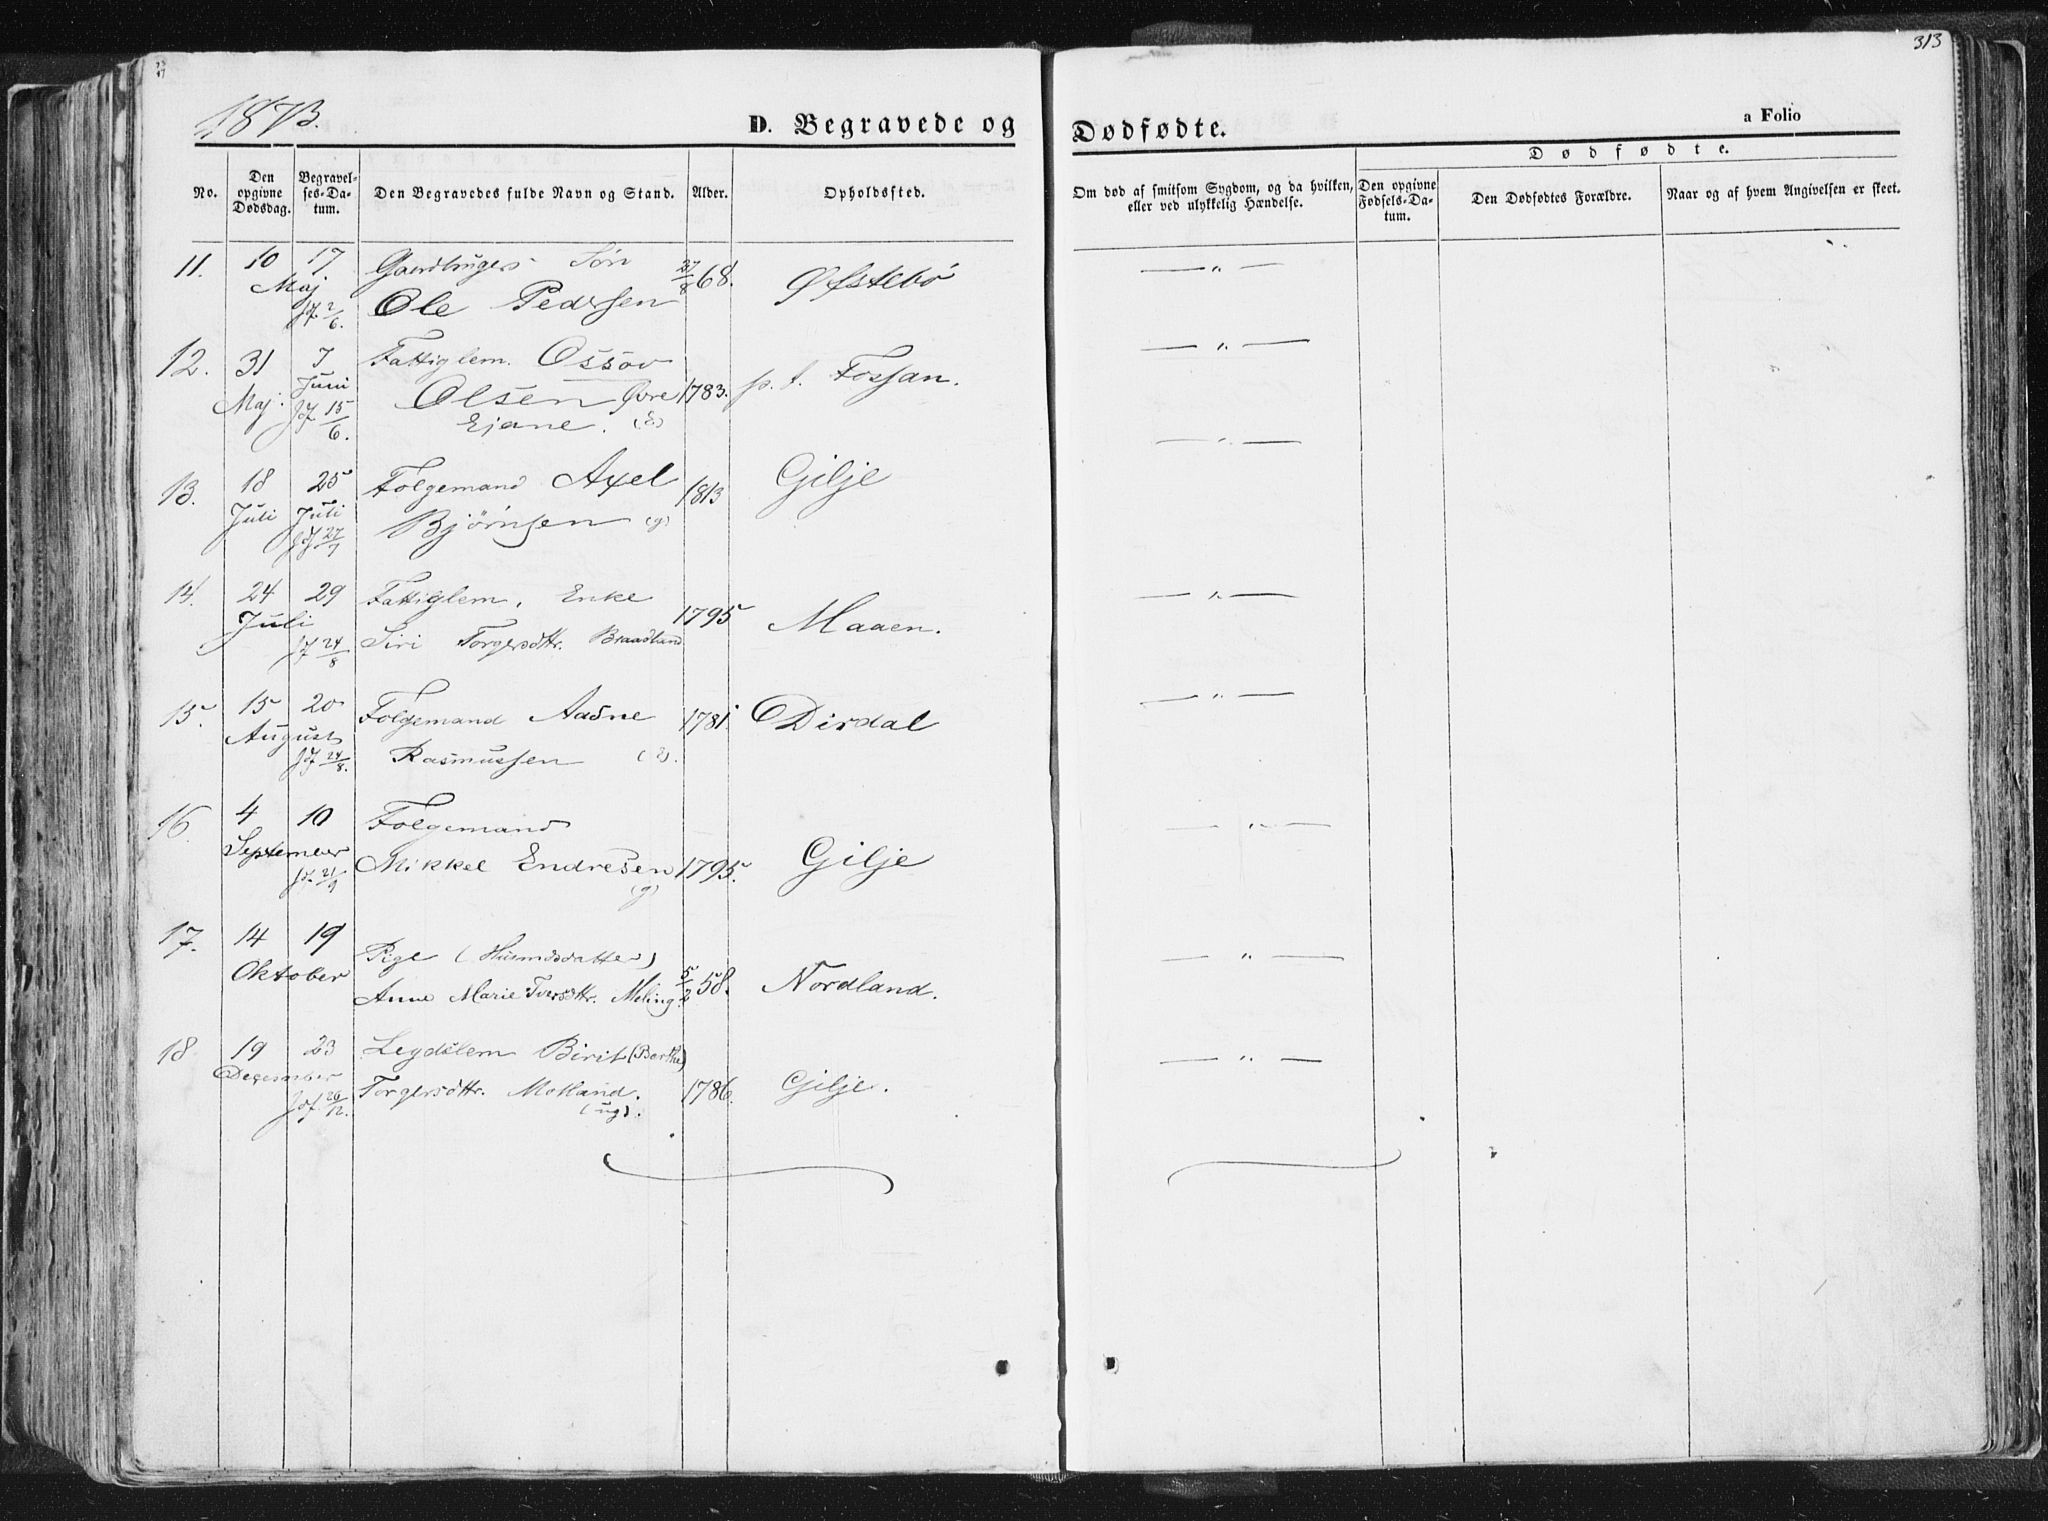 313
1873.
D. Begravede og Dødfødte.
a Folio
Dødfødte.
No.
Den opgivne Dødsdag.
Begravelses-Datum.
Den Begravedes fulde Navn og Stand.
Alder.
Opholdssted.
Om død af smitsom Sygdom, og da hvilken, eller ved ulykkelig Hændelse.
Den opgivne Fødsels-Datum.
Den Dødfødtes Forældre.
Naar og af hvem Angivelsen er skeet.
11. 10 17 Gaardbrugers Søn 27/8 68. Øfstebø — " —
Maj
Jf. 2/6. Ole Pedersen
12. 31 7 Fattiglem. Ossov — " —
Maj. Juni Olsen Øvre 1783. p. t. Fossan.
Jf 15/6. Ejane. (E)
— " —
13. 18 25 Følgemand Axel 1813 Gilje
Juli Juli
Jf 27/7 Bjørnsen (g)
14. 24 29 Fattiglem, Enke 1795 Maaen. — " —
Juli
Jf 24/8 Siri Torgersdttr. Braadland
15. 15 20 Følgemand Aadne 1781. Dirdal — " —
August
Jf 24/8. Rasmussen (E).
16. 4 10 Følgemand — " —
September Mikkel Endresen 1795. Gilje
Jf. 21/9 (g)
17. 14 19 Pige (Husmdsdatter) — " —
Oktober
Anne Marie Iversdttr. Meling 5/2 58. Nordland.
18. 19 23 Legdslem Birit (Berthe) — " —
December
Jf. 26/12. Torgersdttr. Motland. 1786. Gilje.
(ug).